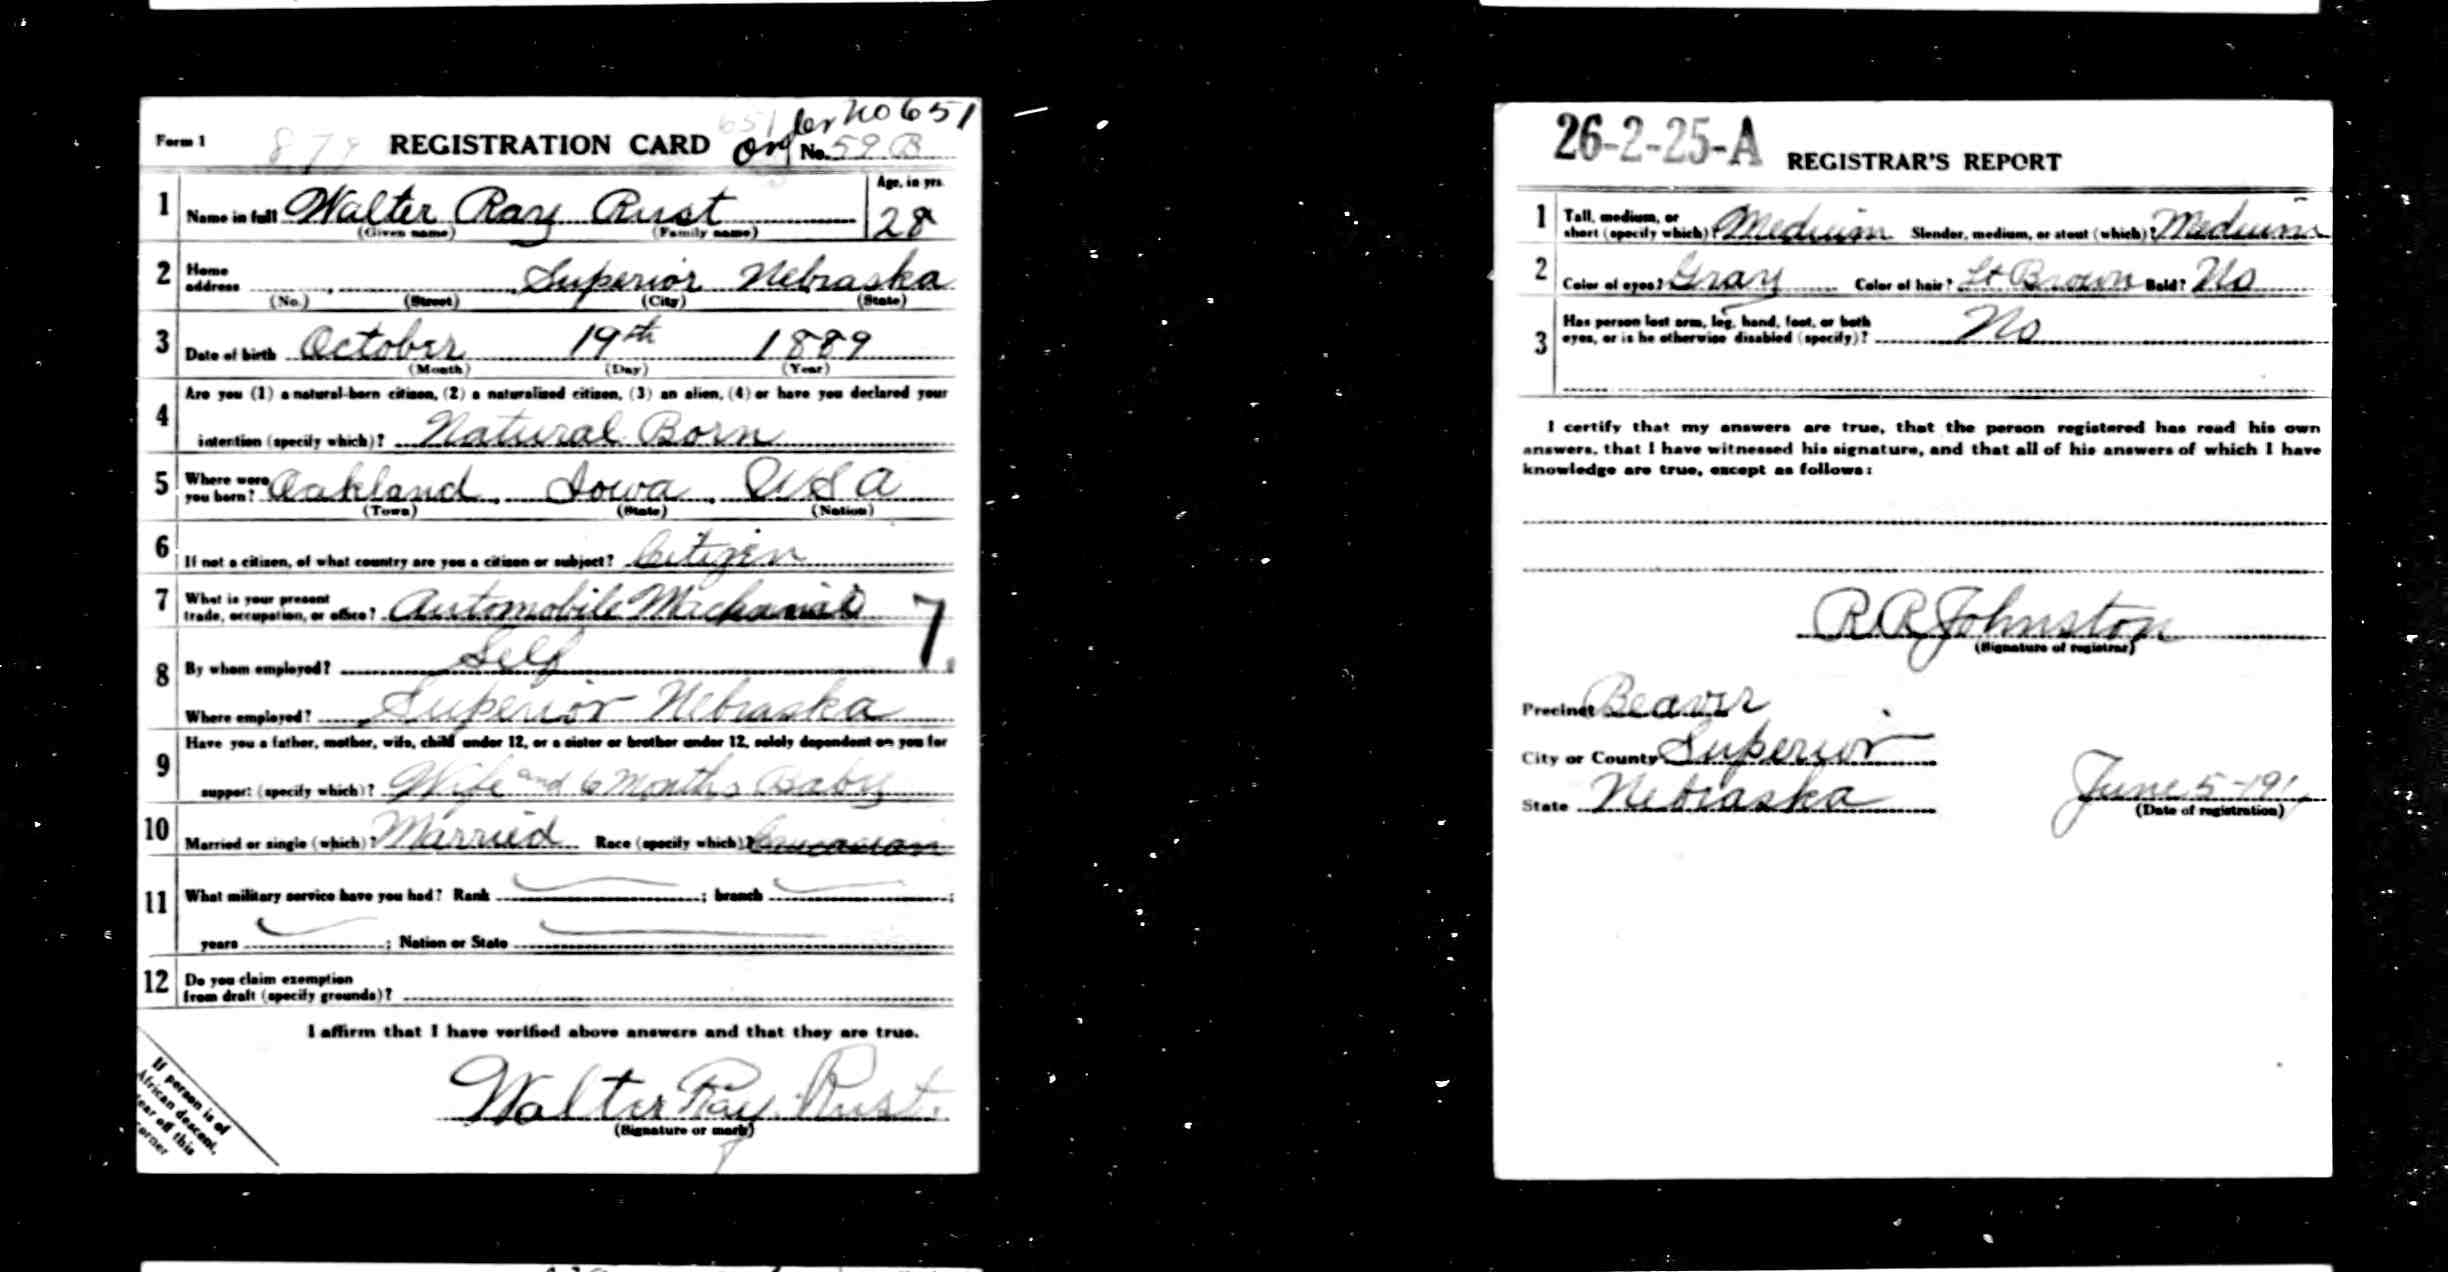 Form 1 879 REGISTRATION CARD 651 Order No 651
No. 59 B
1 Name in full Walter Ray Rust Age, in yrs. 28
(Given name) (Family name)
2 Home address Superior Nebraska
(No.) (Street) (City) (State)
3 Date of birth October 19th 1889
(Month) (Day) (Year)
4 Are you (1) a natural-born citizen, (2) a naturalized citizen, (3) an alien, (4) or have you declared your
intention (specify which)? Natural Born
5 Where were you born? Oakland, Iowa, USA
(Town) (State) (Nation)
6 If not a citizen, of what country are you a citizen or subject? Citizen
7 What is your present
trade, occupation, or office? Automobile 7
8 By whom employed? Self
Where employed? Superior Nebraska
9 Have you a father, mother, wife, child under 12, or a sister or brother under 12, solely dependent on you for
support (specify which)? Wife and 6 Months Baby
10 Married or single (which)? Married Race (specify which)? Caucasian
11 What military service have you had? Rank ; branch ;
years ; Nation or State
12 Do you claim exemption
from draft (specify grounds)?
I affirm that I have verified above answers and that they are true.
Walter Ray Rust.
(Signature or mark)
If person is of
African descent,
tear off this
corner
26-2-25-A REGISTRAR'S REPORT
1 Tall, medium, or
short (specify which)? Medium Slender, medium, or stout (which)? Medium
2 Color of eyes? Gray Color of hair? Lt Brown Bald? No
3 Has person lost arm, leg, hand, foot, or both
eyes, or is he otherwise disabled (specify)? No
I certify that my answers are true, that the person registered has read his own
answers, that I have witnessed his signature, and that all of his answers of which I have
knowledge are true, except as follows:
R R Johnston
(Signature of registrar)
Precinct Beaver
City or County Superior
State Nebraska June 5-191
(Date of registration)